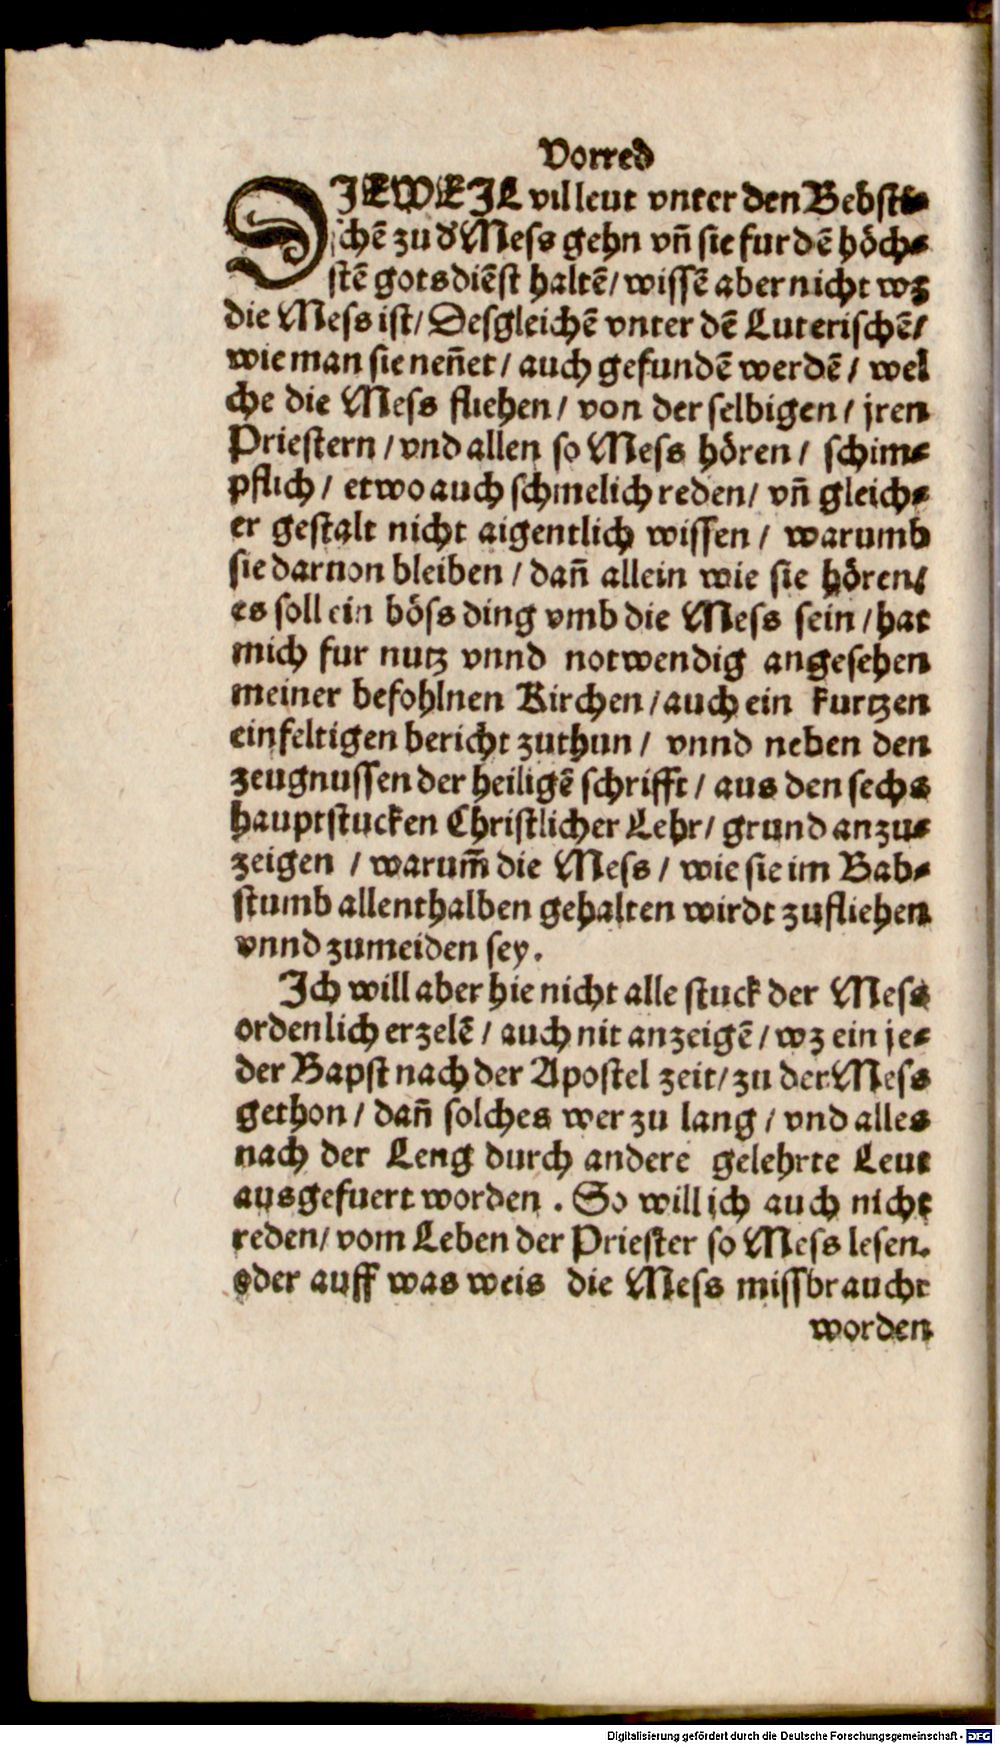 Vorred
DIEWEIL vil leut vnter den Bebsti⸗
schē zu d' Mess gehn vñ sie fur dē höch⸗
stē gots diēst haltē/ wissē aber nicht wz
die Mess ist/ Desgleichē vnter dē Luterischē/
wie man sie neñet/ auch gefundē werdē/ wel
che die Mess fliehen/ von der selbigen/ jren
Priestern/ vnd allen so Mess hören/ schim⸗
pflich/ etwo auch schmelich reden/ vñ gleich⸗
er gestalt nicht aigentlich wissen/ warumb
sie daruon bleiben/ dañ allein wie sie hören/
es soll ein böss ding vmb die Mess sein/ hat
mich fur nutz vnnd notwendig angesehen
meiner befohlnen Kirchen/ auch ein kurtzen
einfeltigen bericht zuthun/ vnnd neben den
zeugnussen der heiligē schrifft/ aus den sechs
hauptstucken Christlicher Lehr/ grund anzu⸗
zeigen/ warum̄ die Mess/ wie sie im Bab⸗
stumb allenthalben gehalten wirdt zufliehen
vnnd zumeiden sey.
Ich will aber hie nicht alle stuck der Mess
ordenlich erzelē/ auch nit anzeigē/ wz ein je⸗
der Bapst nach der Apostel zeit/ zu der Mess
gethon/ dañ solches wer zu lang/ vnd alles
nach der Leng durch andere gelehrte Leut
ausgefuert worden. So will ich auch nicht
reden/ vom Leben der Priester so Mess lesen.
oder auff was weis die Mess missbraucht
worden
Digitalisierung gefördert durch die Deutsche Forschungsgemeinschaft - DFG